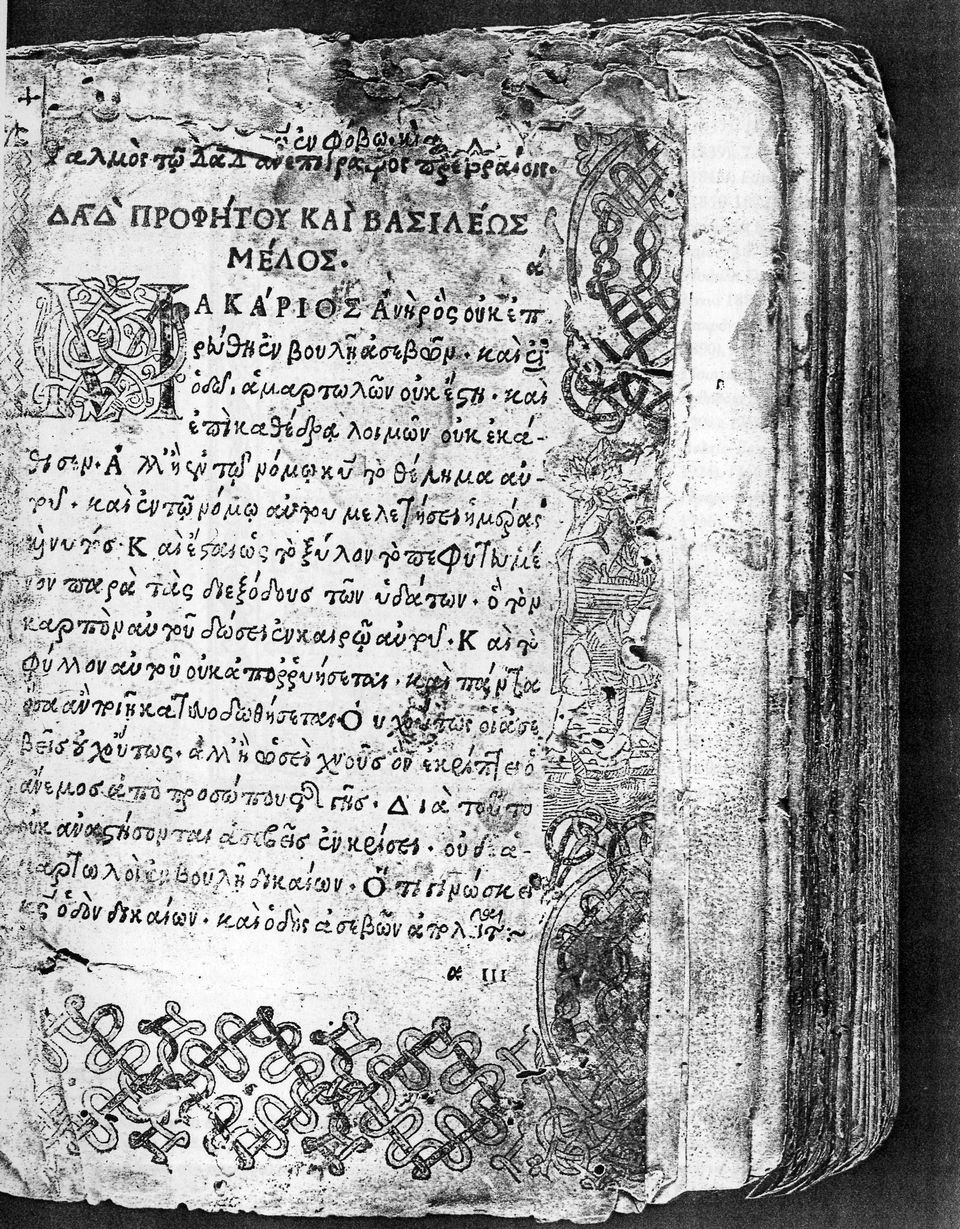 ἐν φόβω κῦ
Ψαλμὸς τῷ Δᾱδ ἀνεπίγραφος παρ' ἑβραίοις.
ΔᾹΔ ΠΡΟΦΉΤΟΥ ΚΑῚ ΒΑΣΙΛΈΩΣ
ΜΈΛΟΣ. ά
ΜΑΚΆΡΙΟΣ Ἀνὴρ ὃς οὐκ ἐπ
ρεύθη ἐν βουλῇ ἀσεβῶν. καὶ ἐν
ὁδῷ ἁμαρτωλῶν οὐκ ἔστη. καὶ
ἐπὶ καθέδρα λοιμῶν οὐκ ἐκά-
θισεν. Ἀλλ' ἢ ἐν τῷ νόμω κυ τὸ θέλημα αὐ-
τοῦ. καὶ ἐν τῷ νόμω αὐτου μελετήσει ἡμέρας
καὶ νυκτός. Καὶ ἔσται ὡς τὸ ξύλον τὸ πεφυτευμέ
νον παρὰ τὰς διεξόδους τῶν ὑδάτων. ὃ τὸν
καρπὸν αὐτοῦ δώσει ἐν καιρῷ αὐτοῦ. Καὶ τὸ
φύλλον αὐτοῦ οὐκ ἀποῤῥυήσεται. καὶ πάντα
ὅσα ἂν ποιῇ κατευοδωθήσεται. Οὐχ οὕτως οἱ ἀσε
βεῖς οὐχ οὕτως. ἀλλ' ἢ ὡσεὶ χνοῦς ὃν ἐκρίπτει ὁ
ἄνεμος ἀπὸ προσώπου τῆς γῆς. Διὰ τοῦτο
οὐκ ἀναστήσονται ἀσεβεῖς ἐν κρίσει. οὐδὲ ἁ-
μαρτωλοὶ ἐν βουλῇ δικαίων. Ὅτι γινώσκει
κς ὁδὸν δικαίων. καὶ ὁδὸς ἀσεβῶν ἀπολεῖται
α III